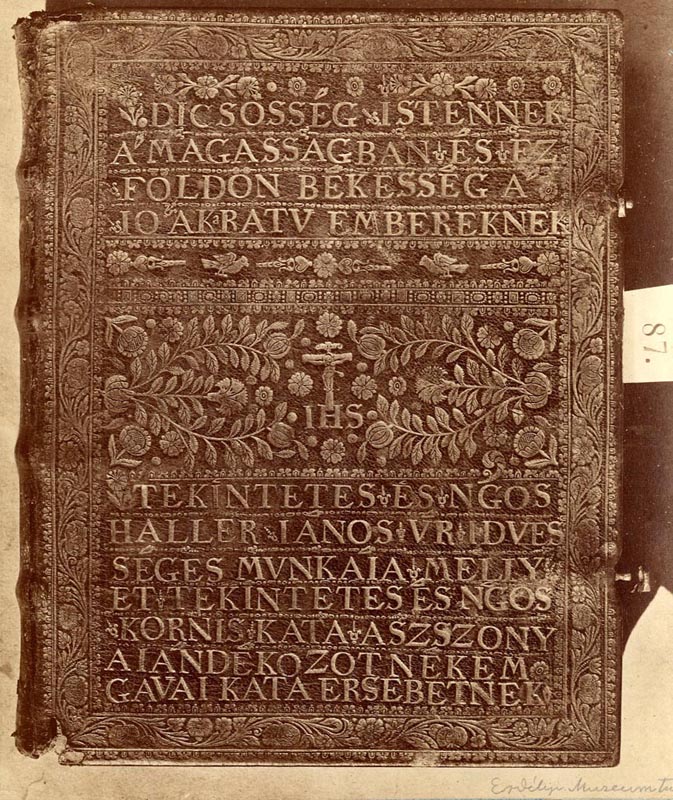 DICSŐSSÉG ISTENNEK
A' MAGASSÁGBAN ÉS EZ
FÖLDÖN BÉKESSÉG A
IO AKARATV EMBEREKNEK
IHS
TEKINTETES ÉS NGOS
HALLER IÁNOS VR IDVES
SÉGES MVNKÁIA MELLY
ET TEKINTETES ÉS NGOS
KORNIS KATA ASZSZONY
AIÁNDÉKOZOT NEKEM
GÁVAI KATA ERSÉBETNEK
87.
Erdélyi Muzeum